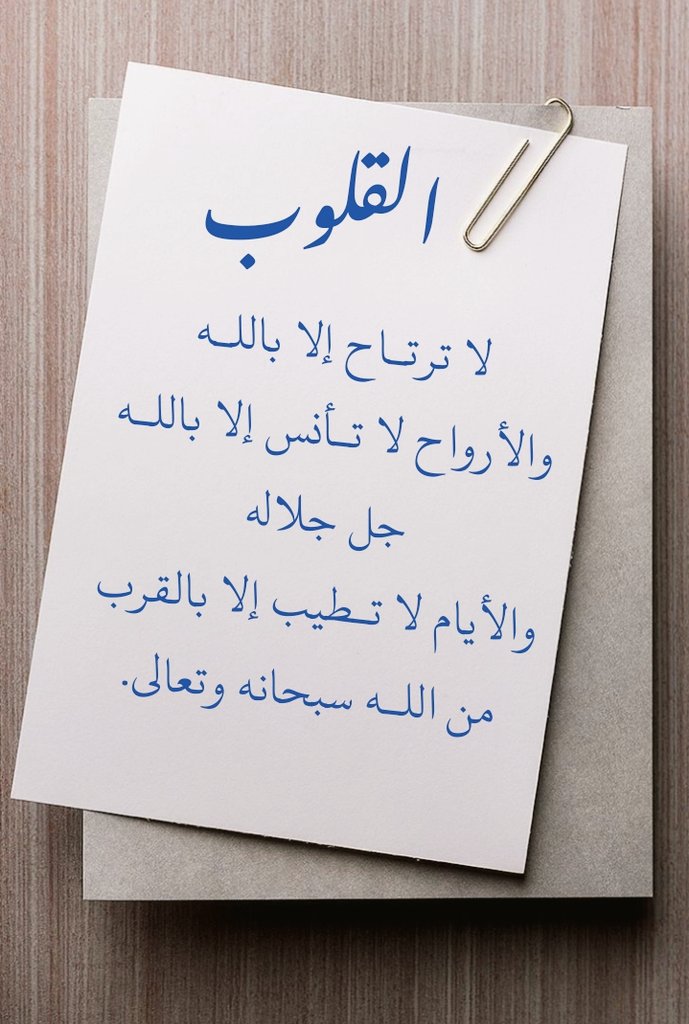 القلوب
لا ترتــاح إلا باللــه
والأرواح لا تــأنس إلا باللــه
جل جلاله
والأيام لا تــطيب إلا بالقرب
من اللــه سبحانه وتعالى.